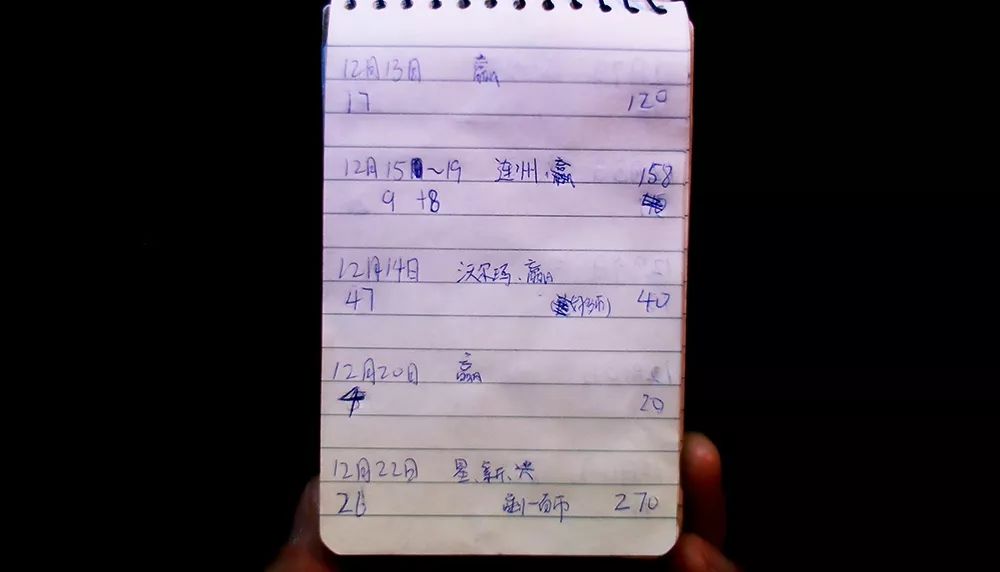 12月13日 赢
17 120
12月15~19 连州、赢 158
9 +8
12月14日 沃尔玛、赢
47 40
12月20日 赢
4 20
12月22日 星、新、兴
26 一百币 270